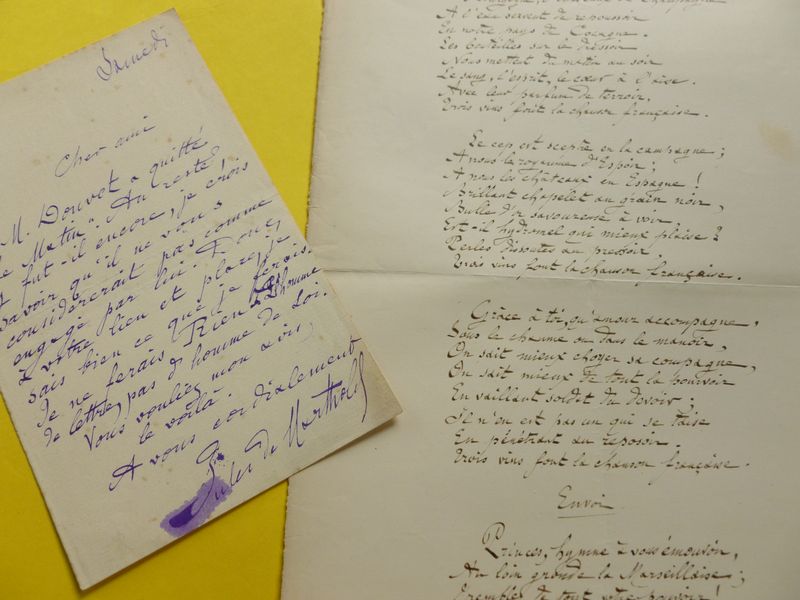 Samedi
Cher ami
M. Douvet a quitté
Le Matin". Au reste,
y fut-il encore, je crois
savoir qu'il ne vous
considèrerait pas comme
engagé par lui. Donc,
à votre lieu et place, je
sais bien ce que je ferais.
Je ne ferais Rien. Pas d'homme
de lettre, pas d'homme de Loi.
Vous vouliez mon avis,
le voilà.
A vous cordialement
Jules de Marthold
A l'eau servent de repoussoir
En notre pays de Cocagne.
Les bouteilles sur le dressoir
Nous mettent du matin au soir
Le sang, l'esprit, le cœur à l'aise.
Avec leur parfum de terroir,
Trois vins font la chanson française.
Le cep est sceptre en la campagne;
A nous le royaume d'Espoir;
A nous les châteaux en Espagne!
Brillant chapelet au grain noir,
Bulle d'or savoureuse à voir,
Est-il hydromel qui mieux plaise?
Perles dissoutes au pressoir,
Trois vins font la chanson française.
Grâce à toi, qu'amour accompagne,
Sous le chaume ou dans le manoir,
On sait mieux choyer sa compagne,
On sait mieux de tout la pourvoir
En vaillant soldat du devoir;
S'il n'en est pas un que se taise
En pénétrant au reposoir.
Trois vins font la chanson française.
Envoi
Princes, hymne à vous émouvoir,
Au loin gronde la Marseillaise;
Trembles de tout votre pouvoir!